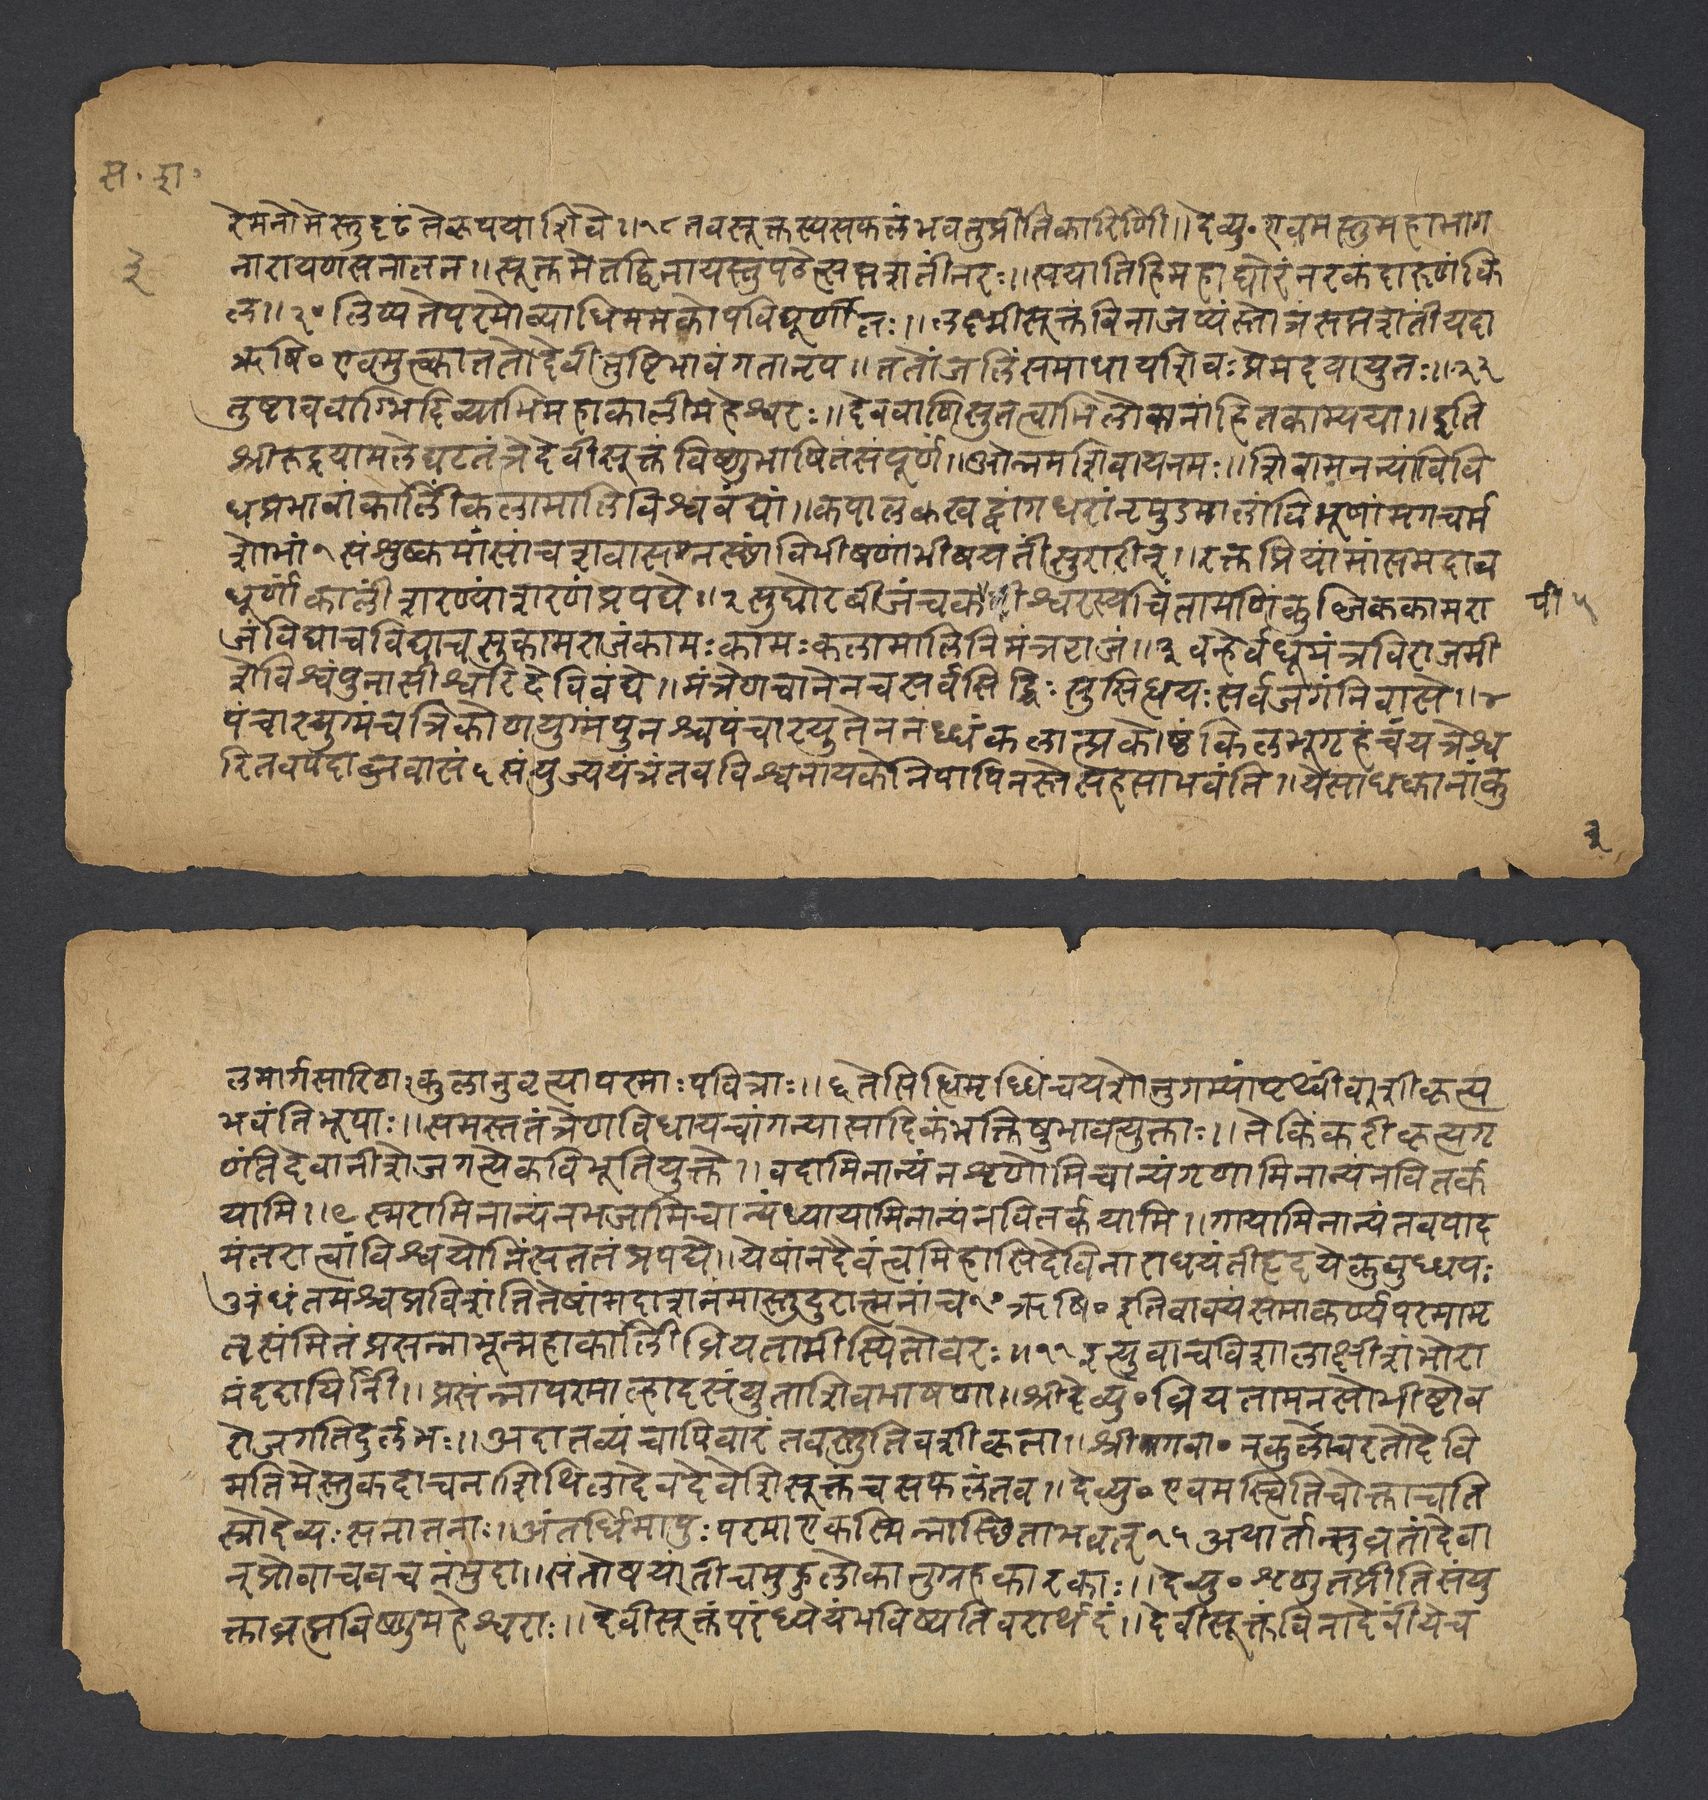 स॰ श॰
३
रेमनोमेस्तुदृढंतेरूपयाशिवे॥१८तवसूक्तस्यसफलंभवतुप्रीतिकारिणी॥देव्यु॰एवमस्तुमहाभाग
नारायणसनातन॥सूक्तमेतद्विनायस्तुपठेत्सप्तशतींनरः॥सयातिहिमहाघोरंनरकंदारूणंकि
ल॥२०लिप्यतेपरमोव्याधिममकोपविघूर्णीतः॥लक्ष्मीसूक्तंविनाजप्यंस्तोत्रंसप्तशतीयदा
ऋषि॰एवमुत्काततोदेवीतुष्टिभावंगतानृप॥ततोंजलिंसमाधायशिवःप्रेमदवायुतः॥२२
तुष्टाववाग्भिदिव्याभिमहाकालीमहेश्वरः॥देववाणिस्तुतत्वाभिलोकानांहितकाम्यया॥इति
श्रीरुद्रयामलेद्यटतंत्रेदेवीसूक्तंविष्णुभाषितंसंपूर्णं॥ओंन्नमशिवायनमः॥शिवामनन्यांविवि
धप्रभावांकालींकलामालिविश्ववंद्यां॥कपालकखट्वांगधरांनृमुडमालांविभूणांमगचर्म
शोभां१संश्रुष्कमांसांचशवासनस्थांविभीषणांभीषयतींसुरारीन्॥रक्तप्रियांमांसमदाव
घूर्णांकालींशरण्यांशरणंप्रपद्ये॥२सुघोरबीजंचकश्वरस्यचिंतामणिंकुब्जिककामरा
पी ५
जंविद्याचविद्याचसुकामराजंकामःकामःकलामालिनिमंत्रराजं॥३वन्हेर्वधूमंत्रविराजमी
शेविश्वंपुनासीश्वरिदेविवंद्ये॥मंत्रेणचानेनचसर्वसिद्धिःसुसिध्धयःसर्वजगंनिवासे॥४
पंचारयुग्मंचत्रिकोणयुग्मंपुनश्चपंचारयुतेननध्धंकलात्प्रकोष्ठंकिलभूगहंचंयत्रेश्व
रितवपदाब्जवासं५संपुज्ययंत्रंतवविश्वनायकेनिपापिनस्तेसहसाभवंति॥येसाधकानांकु
३
लमार्गसारिणःकुलानुवृत्यापरमाःपवित्राः॥६तेसिध्धिमृध्धिंचयशोनुगम्यांपृथ्वींवशीकृत्य
भवंतिभूपाः॥समस्ततंत्रेणविधायचांगन्यासादिकंभक्तिषुभावयुक्ताः॥तेकिंकरीकृत्यग
णंतिदेवानीशेजगत्यैकविभूतियुक्ते॥वदामिनान्यंनश्रृणोमिचान्यंगणामिनान्यंनवितर्क
यामि॥९स्मरामिनान्यंनभजामिचान्यंध्यायामिनान्यंनवितर्कयामि॥गायामिनान्यंतवपाद
मंतरात्वांविश्वयोनिंसततंप्रपद्ये॥येषांनदैवंत्वमिहासिदेविनाराधयंतीहृदयेकुबुध्धयः
अंधंतमश्चप्रविशंतितेषांमदाशनंमास्तुदुरात्मनांच१०ऋषि॰इतिवाक्यंसमाकर्ण्यपरमामृ
तसंमितंप्रसन्नाभून्महाकालीप्रियतामीस्पितोवरः॥११इत्युवाचविशालाक्षीशंभोरा
नंददायिनी॥प्रसंन्नापरमाल्हादसंयुताशिवभाषणा॥श्रीदेव्यु॰व्रियतामनसोभीष्टोव
रोजगतिदुर्लभः॥अदातव्यंचापिवारंतवस्तुतिवशीकृता॥श्रीभगवा॰नकुर्लेवरतोदेवि
मतिमेस्तुकदाचनाशिथिलादेवदेवेशिसूक्तंचसफलंतव॥देव्यु॰एवमस्त्वितिचोक्ताचति
स्त्रोदेव्यःसनातनाः॥अंतर्धिमापुःपरमाएकस्मिन्नास्छिताभवत्१५अथार्तान्स्तुव्रतोदेवा
न्प्रोवाचवचनंमुदा॥संतोषयांतीचमुहुलोकानुग्रहकारकाः॥देव्यु॰शृणुतप्रीतिसंयु
क्ताब्रह्मविष्णुमहेश्वराः॥देवीसूक्तंपरंध्येयंभविष्यतिवरार्थदं॥देवीसूक्तंविनादेवींयेच